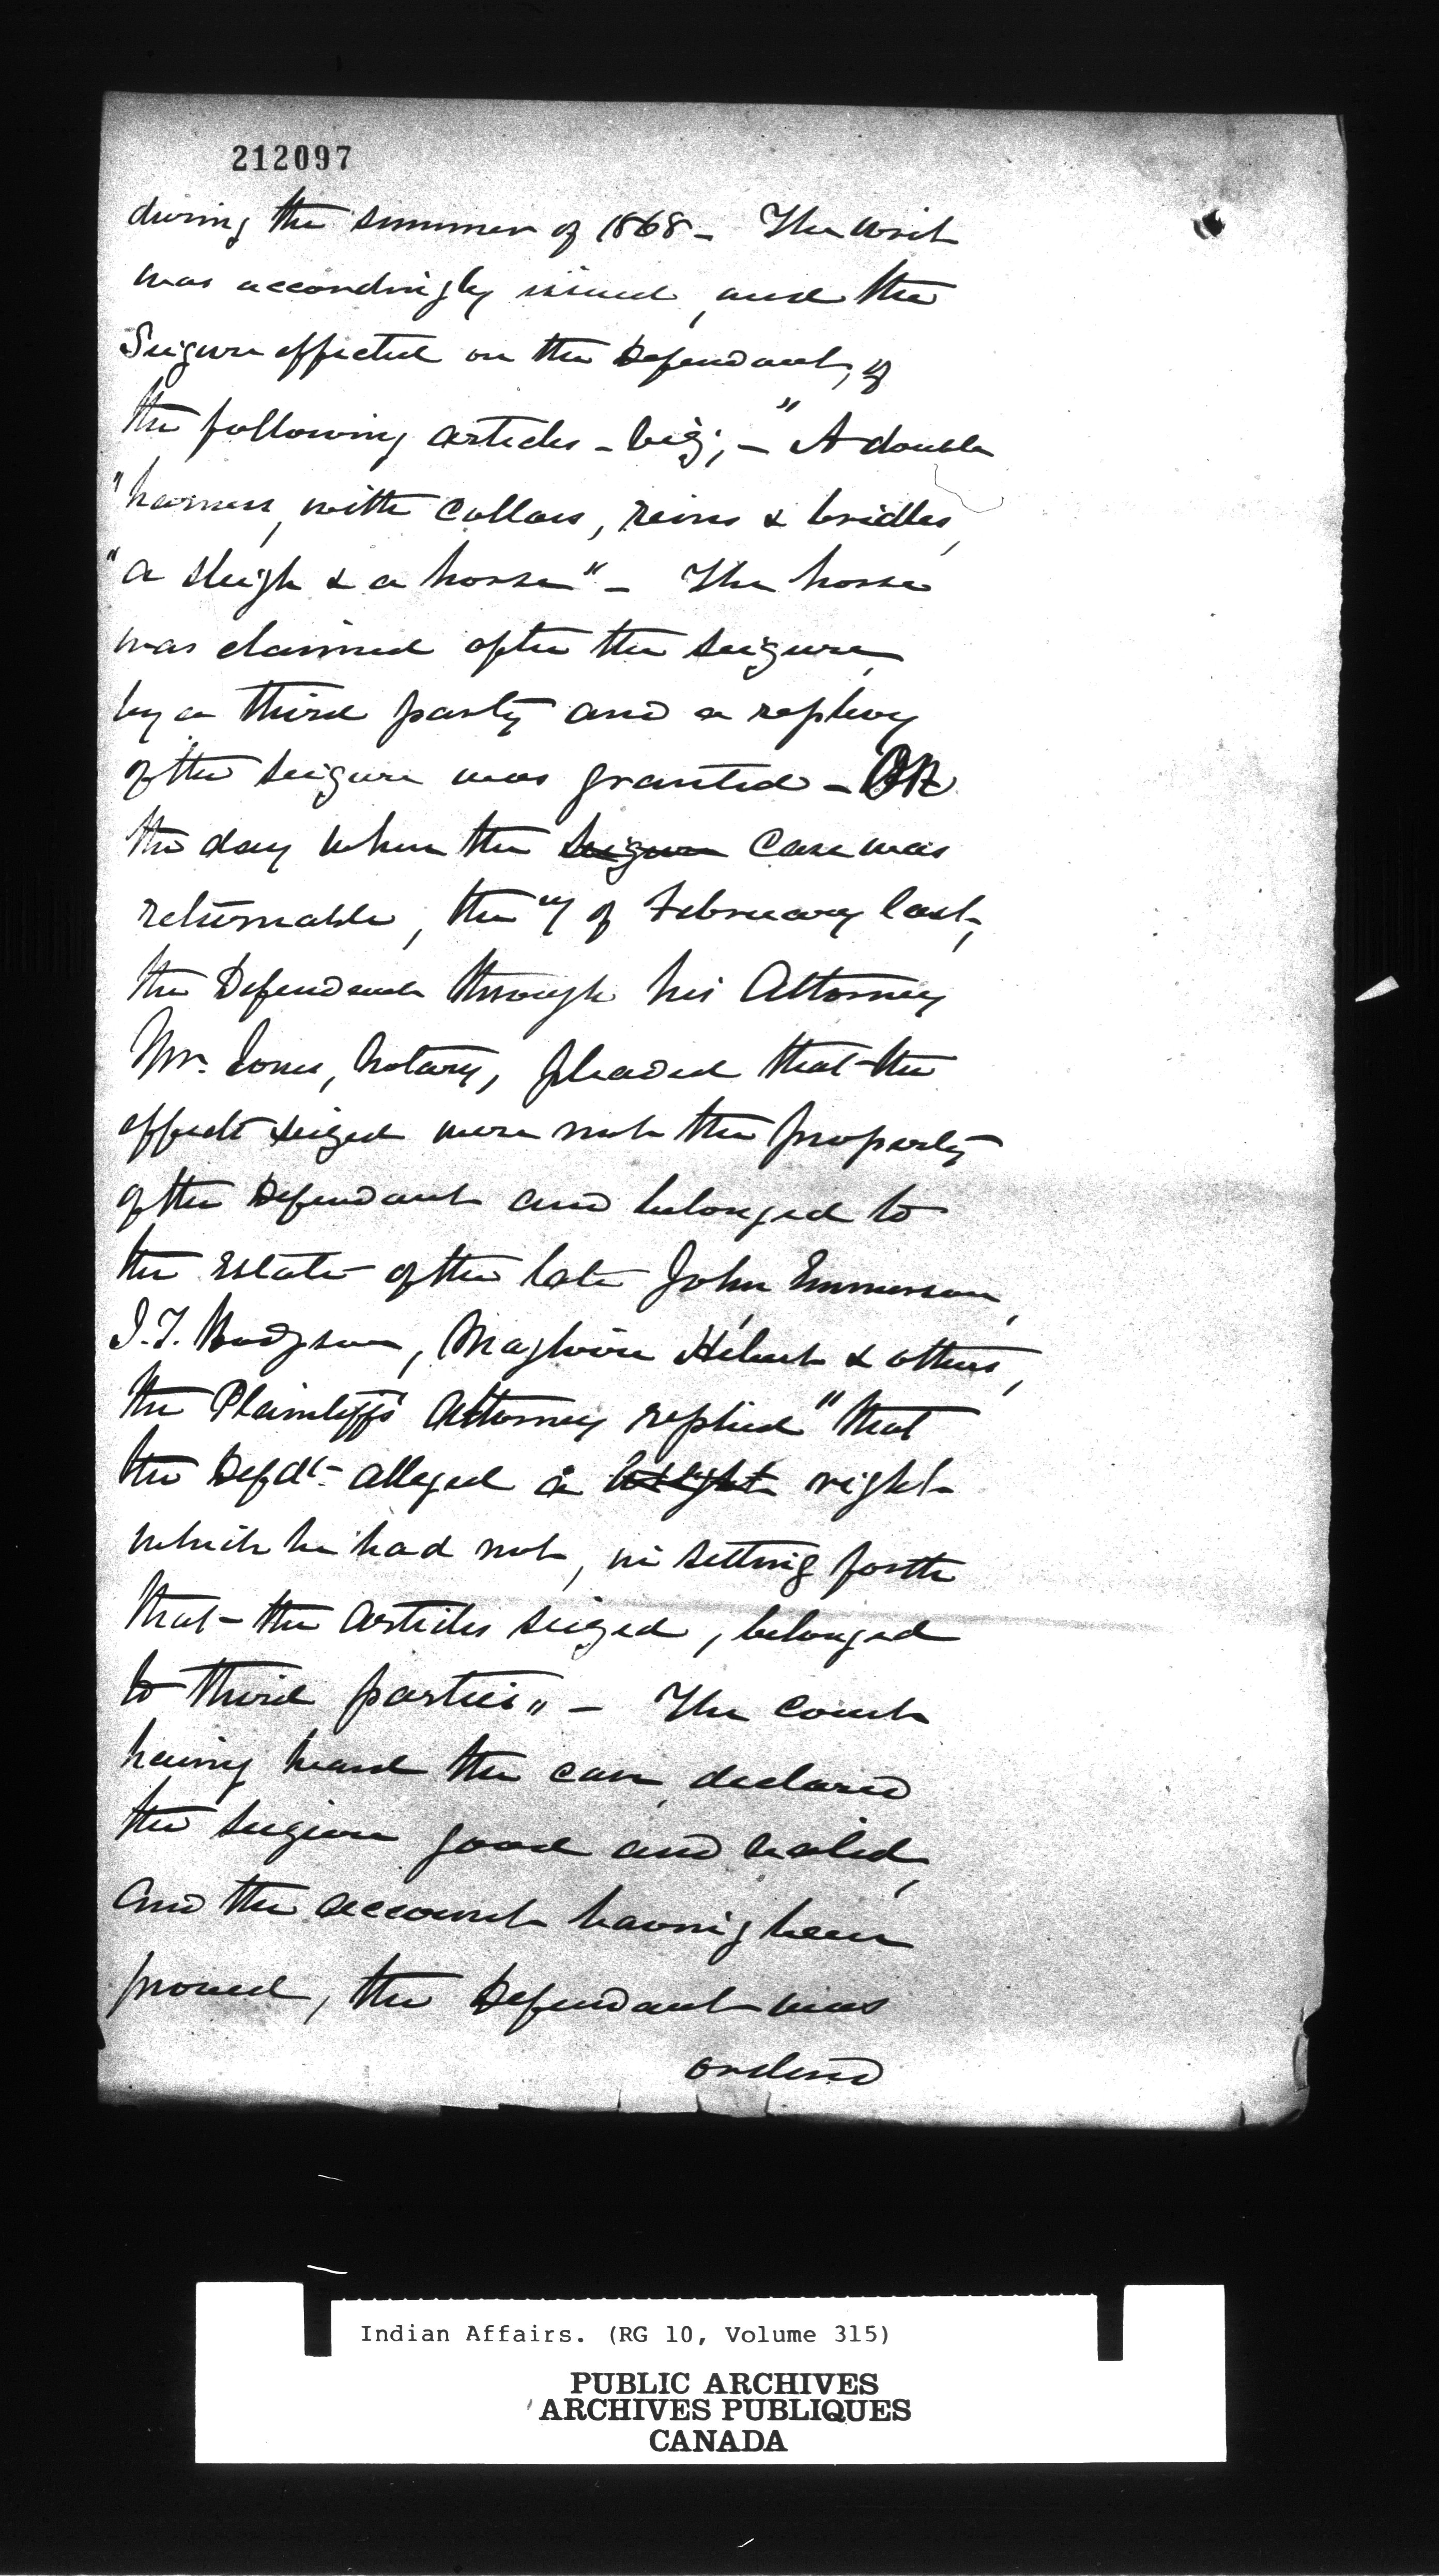 212097
during the summer of 1868 - The writ
was accordingly issued, and the
Seizure effected on the Defendant, of
the following articles - viz; - "A double
"harness, with collars, reins & bridles,
"a sleigh & a horse" - The horse
was claimed after the seizure,
by a third party and a replevy
of the seizure was granted - On
the day when the seizure case was
returnable, the 4 of February last,
the Defendant through his Attorney
Mr. Jones, Notary, pleaded that the
effects seized were not the property
of the Defendant and belonged to
the Estate of the late John Emmerson,
J. T. Hodgson, Magloire Hébert & others,
the Plaintiff's Attorney replied "that
the Defdt. alleged a right
which he had not, in setting forth
that the articles seized, belonged
to third parties" - The court
having heard the case, declared
the seizure good and valid,
and the account having been
proved, the Defendant was
ordered
Indian Affairs. (RG 10, Volume 315)
PUBLIC ARCHIVES
ARCHIVES PUBLIQUES
CANADA